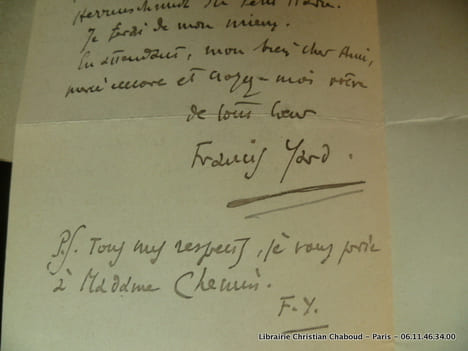 Je ferai de mon mieux.
En attendant, mon bien cher Ami,
merci encore et croyez-moi votre
de tout cœur
Francis Yard.
P.S. Tous mes respects, je vous prie
à Madame Chemin.
F.Y.
Librairie Christian Chaboud – Paris – 06.11.46.34.00